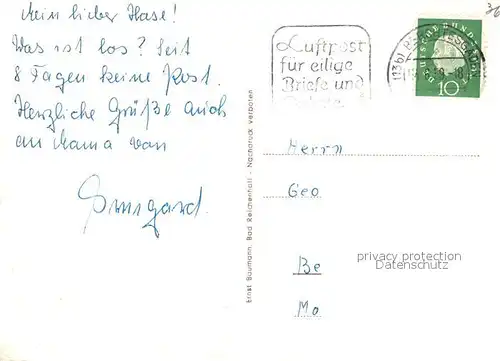 Mein lieber Hase!
Was ist los? Seit
8 Tagen keine Post.
Herzliche Grüße auch
an Mama von
Irmgard.
Ernst Baumann, Bad Reichenhall - Nachdruck verboten
Luftpost
für eilige
Briefe und
DEUTSCHE BUNDESPOST
10
36
Herrn
Geo
Be
Mo
privacy protection
Datenschutz